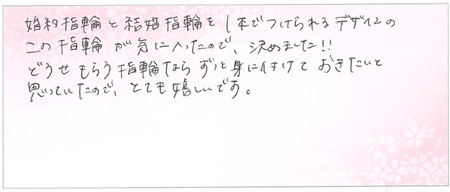 婚約指輪と結婚指輪を1本でつけられるデザインの
この指輪が気に入ったので、決めました!!
どうせもらう指輪なら ずっと身に付けて おきたいと
思っていたので、とても嬉しいです。